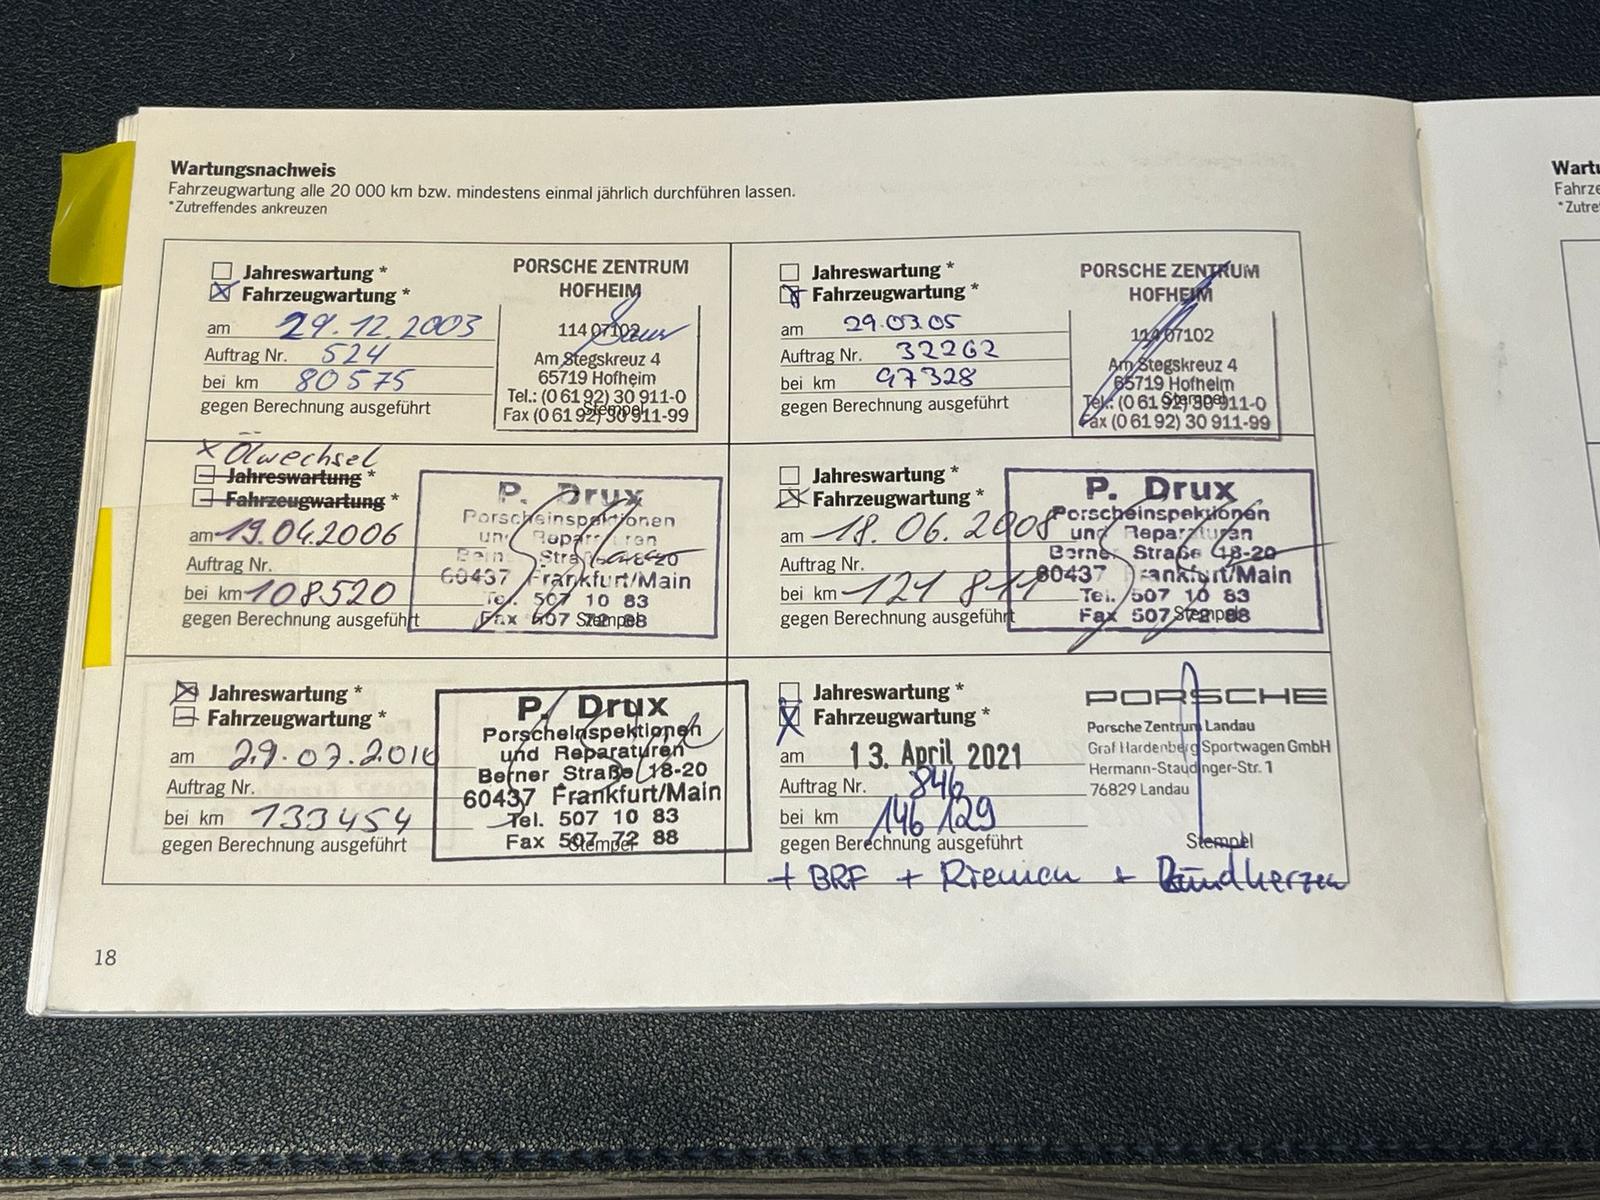 Wartungsnachweis
Fahrzeugwartung alle 20 000 km bzw. mindestens einmal jährlich durchführen lassen.
*Zutreffendes ankreuzen
Jahreswartung *
Fahrzeugwartung *
am 29.12.2003
Auftrag Nr. 524
bei km 80575
gegen Berechnung ausgeführt
PORSCHE ZENTRUM
HOFHEIM
11407102
Am Stegskreuz 4
65719 Hofheim
Tel.: (0 61 92) 30 911-0
Stempel
Fax (0 61 92) 30 911-99
Jahreswartung *
Fahrzeugwartung *
am 29.03.05
Auftrag Nr. 32262
bei km 97328
gegen Berechnung ausgeführt
PORSCHE ZENTRUM
HOFHEIM
11407102
Am Stegskreuz 4
65719 Hofheim
Tel.: (0 61 92) 30 911-0
Stempel
Fax (0 61 92) 30 911-99
x Ölwechsel
Jahreswartung *
Fahrzeugwartung *
am 19.04.2006
Auftrag Nr.
bei km 108520
gegen Berechnung ausgeführt
P. Drux
Porscheinspektionen
und Reparaturen
Berner Straße 18-20
60437 Frankfurt/Main
Tel. 507 10 83
Fax 507 72 88
Stempel
Jahreswartung *
Fahrzeugwartung *
am 18.06.2008
Auftrag Nr.
bei km 121 811
gegen Berechnung ausgeführt
P. Drux
Porscheinspektionen
und Reparaturen
Berner Straße 18-20
60437 Frankfurt/Main
Tel. 507 10 83
Fax 507 72 88
Stempel
Jahreswartung *
Fahrzeugwartung *
am 29.07.2010
Auftrag Nr.
bei km 133454
gegen Berechnung ausgeführt
P. Drux
Porscheinspektionen
und Reparaturen
Berner Straße 18-20
60437 Frankfurt/Main
Tel. 507 10 83
Fax 507 72 88
Stempel
Jahreswartung *
Fahrzeugwartung *
am 13. April 2021
Auftrag Nr. 846
bei km 146 129
gegen Berechnung ausgeführt
PORSCHE
Porsche Zentrum Landau
Graf Hardenberg Sportwagen GmbH
Hermann-Staudinger-Str. 1
76829 Landau
Stempel
+ BRF + Riemen + Zündkerzen
18
Wartu
Fahrze
*Zutre